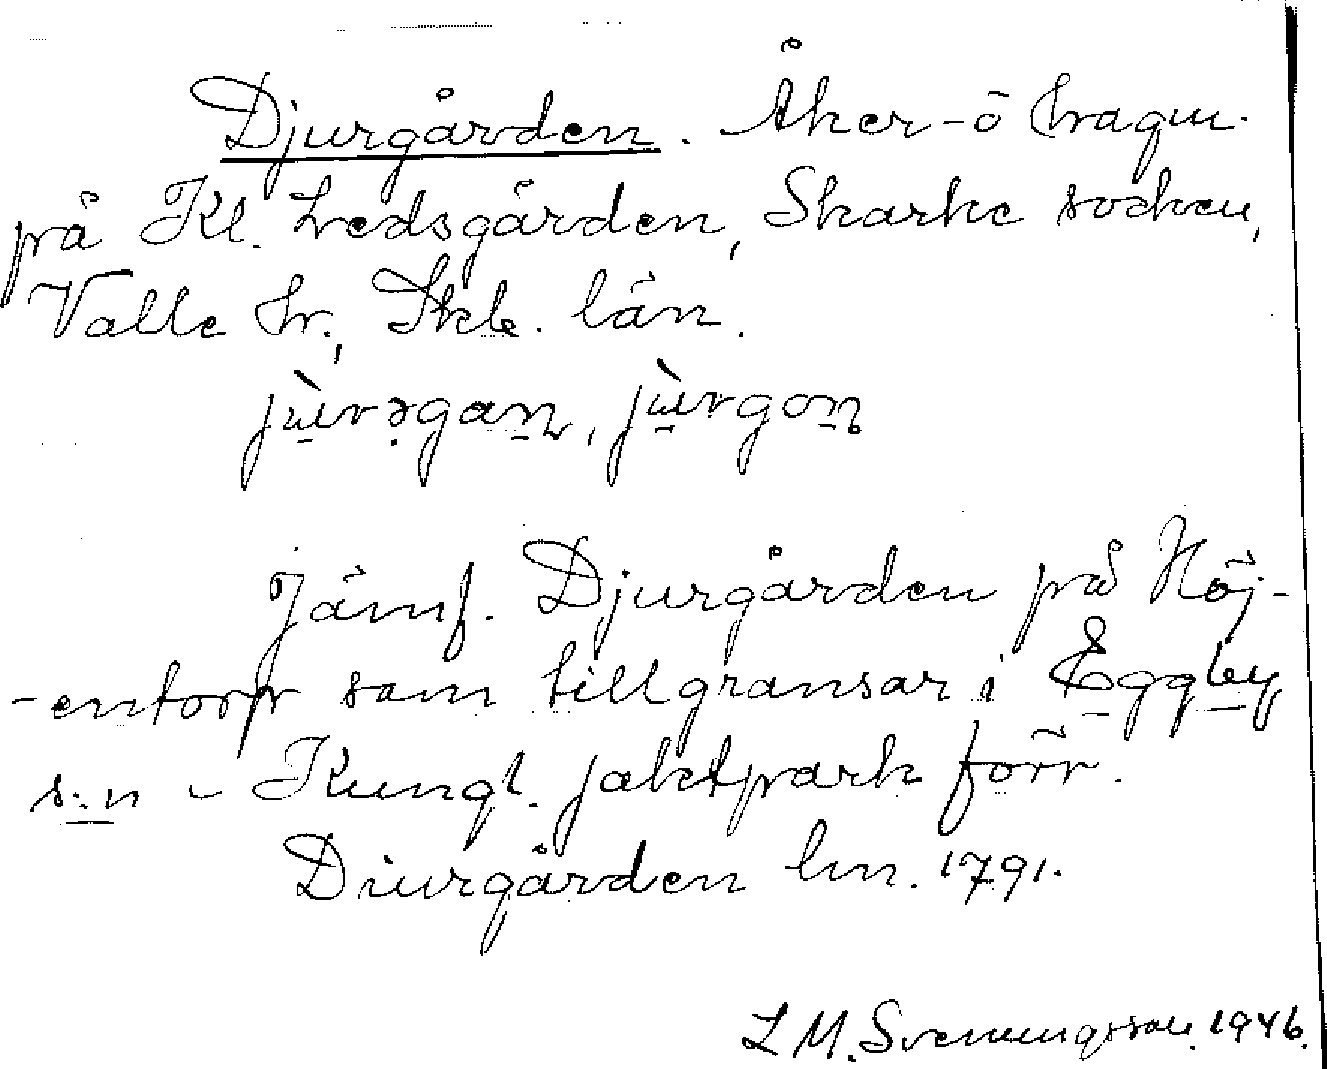 Djurgården. Åker- ö hagm.
på Kl. Ledsgården, Skarke socken,
Valle hr., Skb. län.
jùrəgan, jùrgon
Jämf. Djurgården på Höj-
-entorp som tillgränsar i Eggby
s:n - Kungl. jaktpark förr.
Diurgården lm. 1791.
L M. Svenungsson. 1946.